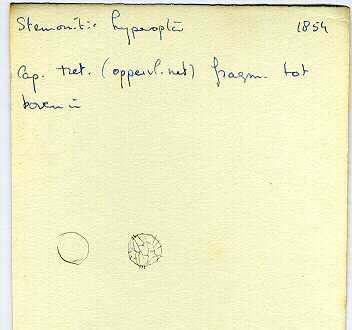 Stemonitis hyperopta 1854
Cap. ret. (oppervl. net) fragm. tot
boven in